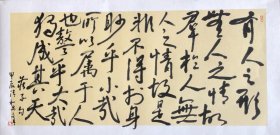 有人之形
無人之情故
群於人無
人之情故是
非不得於身
眇乎小哉
所以屬于人
也謷乎大哉
獨成其天
莊子句